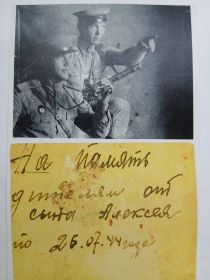 На память
от
сына Алексея
26.07.44 года